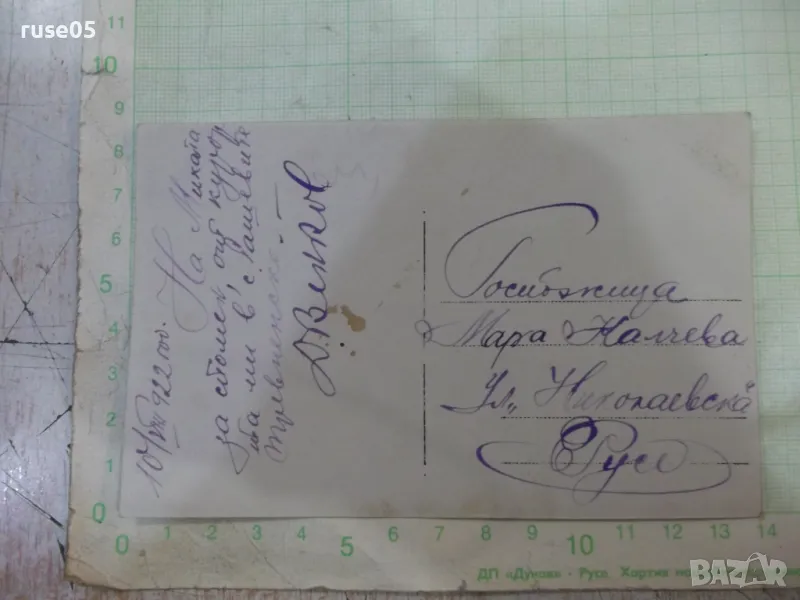 ruse05
10/VIII 922 год.
На Миката
за спомен от курор
та ни в с.
Д. Вълков
Госпожица
Мара Налчева
Ул. „Николаевска“
Русе
11
10
9
8
7
6
5
4
3
2
1
0
0 1 2 3 4 5 6 7 8 9 10 11 12 13 14
ДП «Дунав» · Русе. Хартия
BAZAR